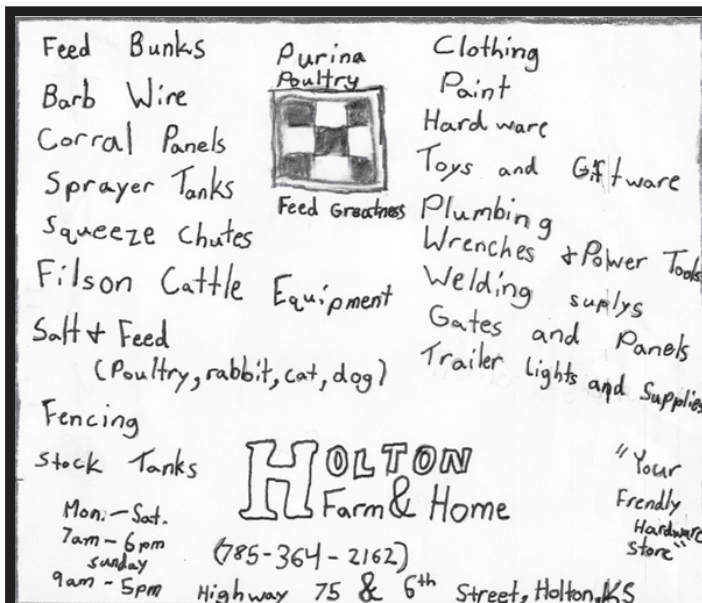 Feed Bunks
Barb Wire
Corral Panels
Sprayer Tanks
Squeeze chutes
Filson Cattle Equipment
Salt & Feed
(Poultry, rabbit, cat, dog)
Fencing
Stock Tanks
Purina
Poultry
Feed Greatness
Clothing
Paint
Hardware
Toys and Giftware
Plumbing
Wrenches & Power Tools
Welding suplys
Gates and Panels
Trailer Lights and Supplies
Mon. - Sat.
7am - 6pm
sunday
9am - 5pm
HOLTON
Farm & Home
(785-364-2162)
Highway 75 & 6th Street, Holton, KS
"Your
Frendly
Hardware
Store"